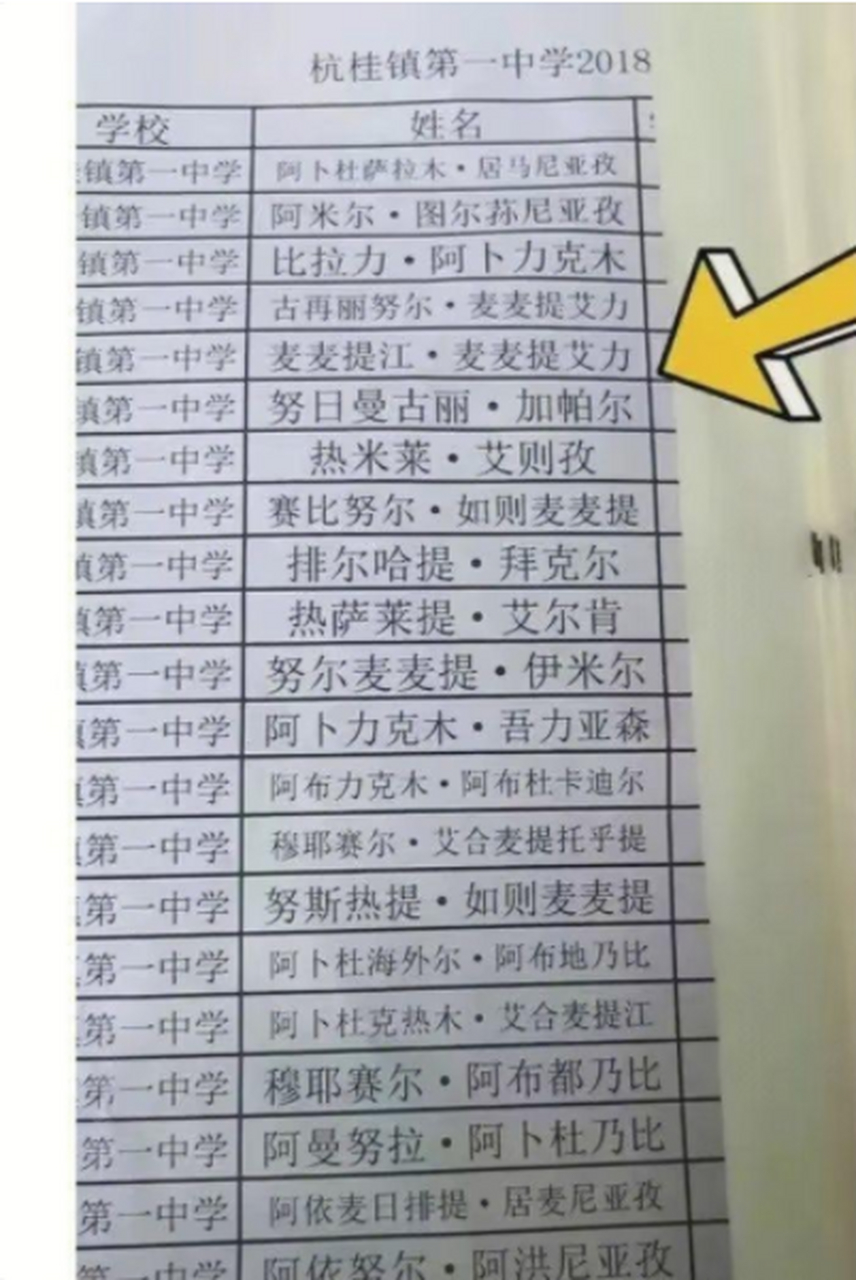 杭桂镇第一中学2018
学校 姓名
镇第一中学 阿卜杜萨拉木·居马尼亚孜
镇第一中学 阿米尔·图尔荪尼亚孜
镇第一中学 比拉力·阿卜力克木
镇第一中学 古再丽努尔·麦麦提艾力
镇第一中学 麦麦提江·麦麦提艾力
镇第一中学 努日曼古丽·加帕尔
镇第一中学 热米莱·艾则孜
镇第一中学 赛比努尔·如则麦麦提
镇第一中学 排尔哈提·拜克尔
镇第一中学 热萨莱提·艾尔肯
镇第一中学 努尔麦麦提·伊米尔
第一中学 阿卜力克木·吾力亚森
第一中学 阿布力克木·阿布杜卡迪尔
第一中学 穆耶赛尔·艾合麦提托乎提
第一中学 努斯热提·如则麦麦提
第一中学 阿卜杜海外尔·阿布地乃比
第一中学 阿卜杜克热木·艾合麦提江
第一中学 穆耶赛尔·阿布都乃比
第一中学 阿曼努拉·阿卜杜乃比
第一中学 阿依麦日排提·居麦尼亚孜
第一中学 阿依努尔·阿洪尼亚孜